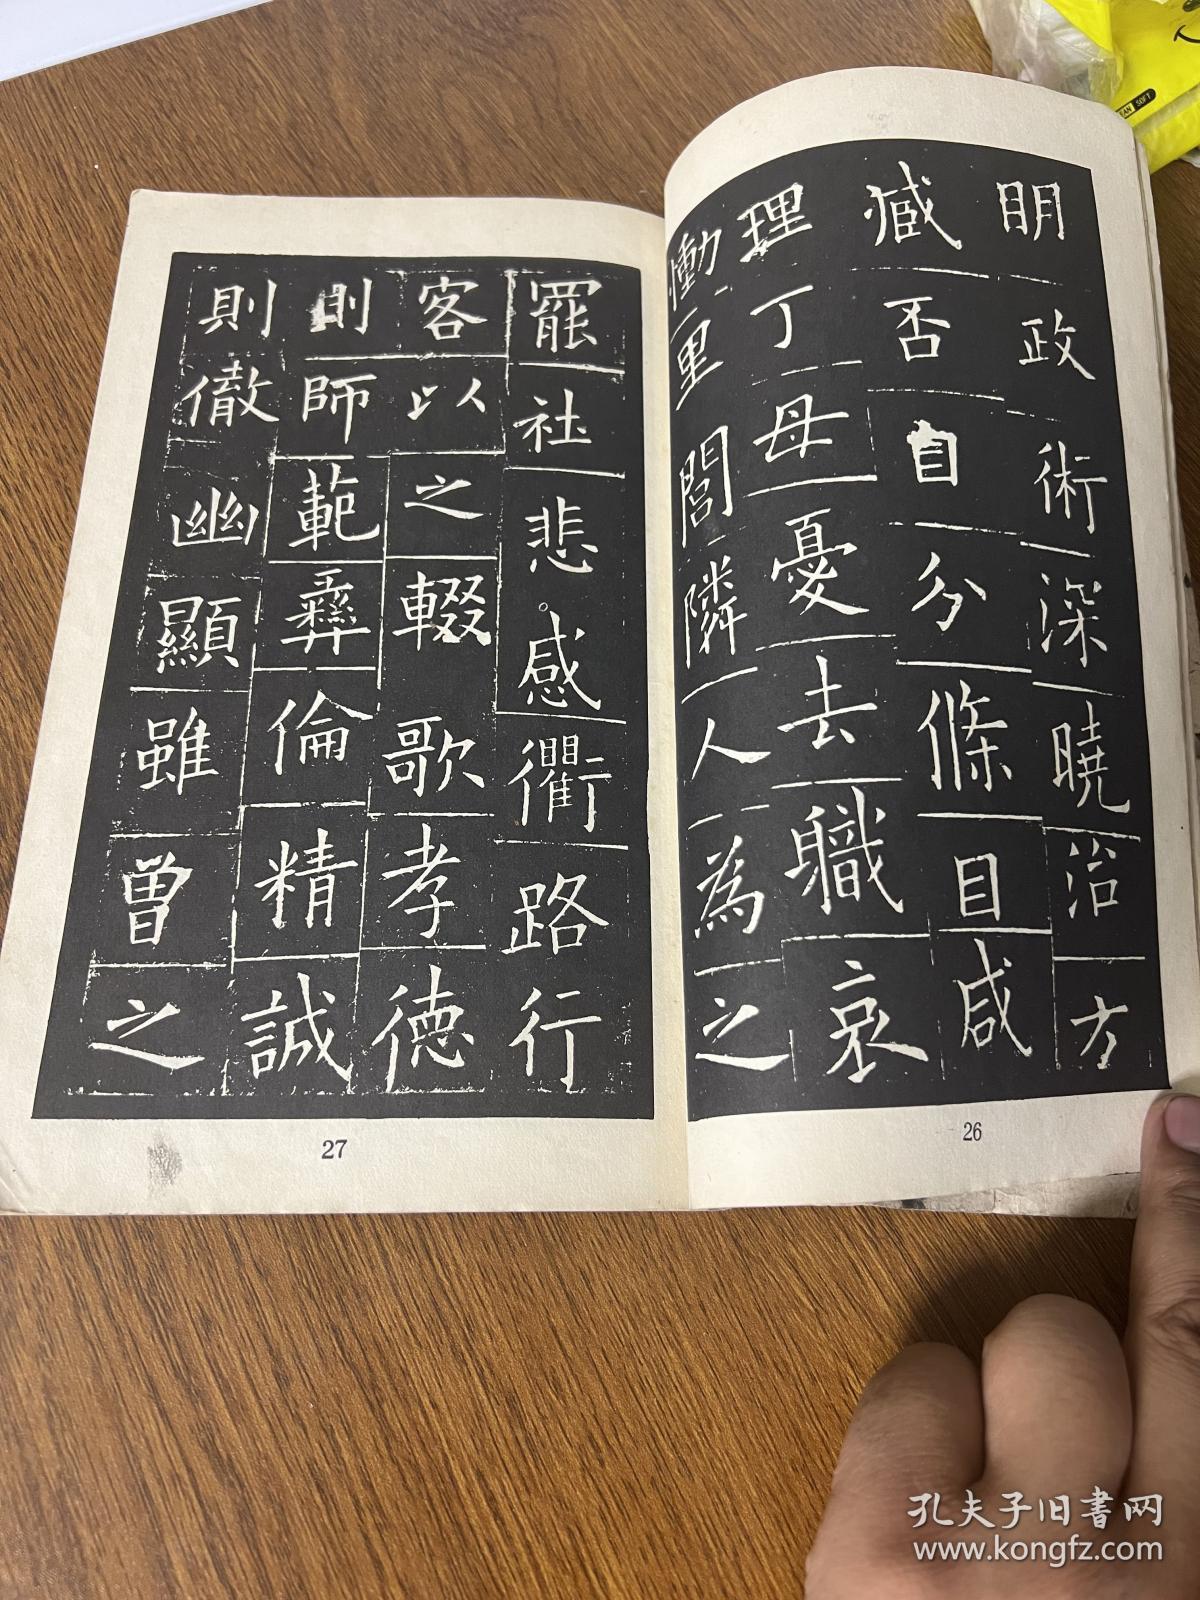 明政術深曉治方
臧否自分條目咸
理丁母憂去職哀
慟里閭隣人為之
26
罷社悲感衢路行
客以之輟歌孝德
則師範彝倫精誠
則徹幽顯雖曾之
27
SOFT
孔夫子旧书网
www.kongfz.com